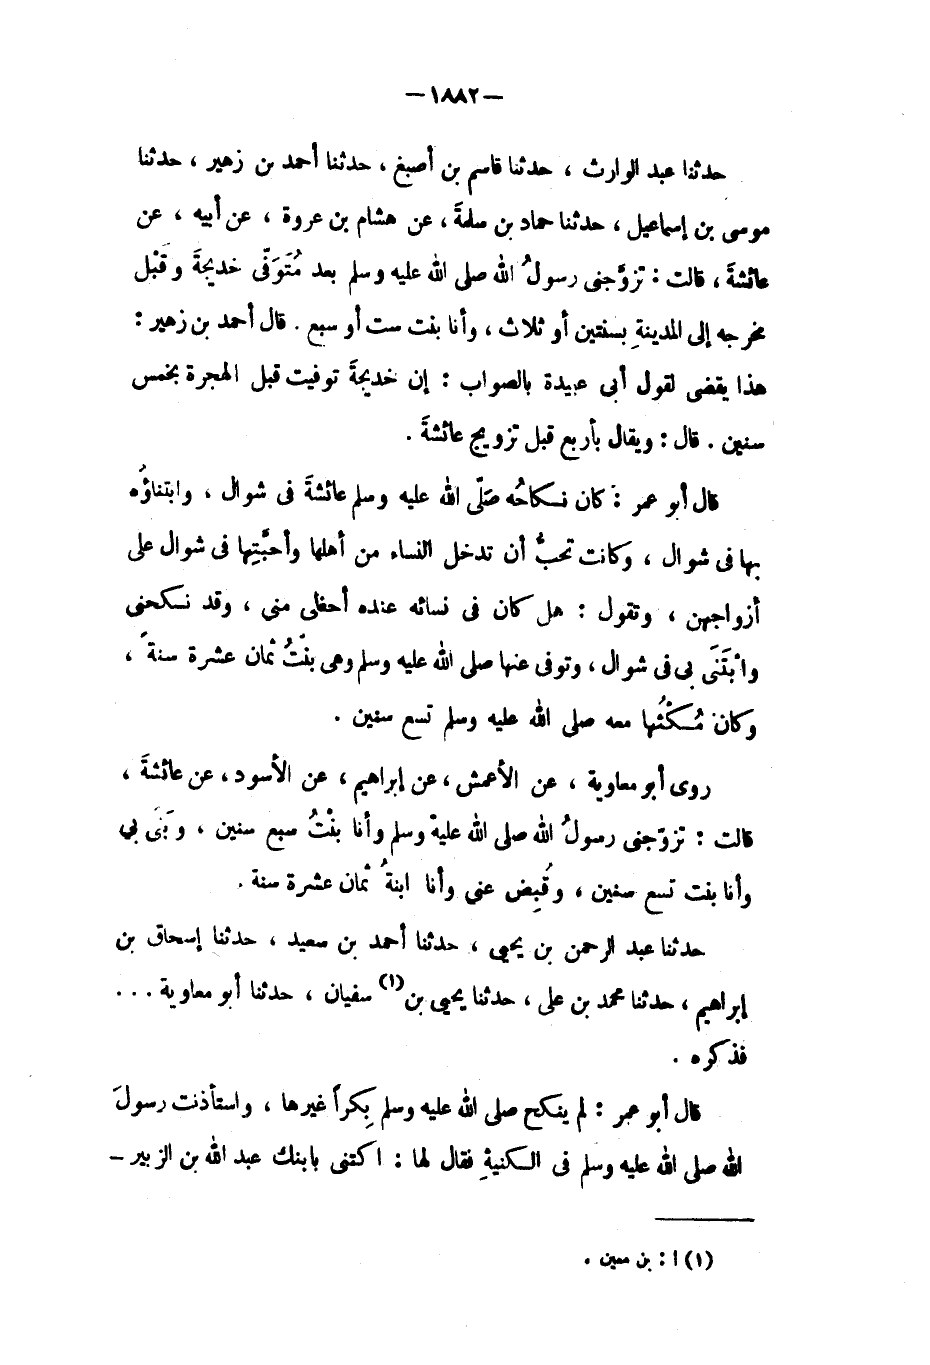 — ١٨٨٢ —
حدثنا عبد الوارث ، حدثنا قاسم بن أصبغ ، حدثنا أحمد بن زهير ، حدثنا
موسى بن إسماعيل ، حدثنا حماد بن سلمةَ ، عن هشام بن عروة ، عن أبيه ، عن
عائشةَ ، قالت : تزوَّجنى رسولُ الله صلى الله عليه وسلم بعد مُتَوَفَّى خديجةَ وقَبْل
مخرجه إلى المدينةِ بسنتين أو ثلاث ، وأنا بنت ست أو سبع . قال أحمد بن زهير :
هذا يقضى لقول أبى عبيدة بالصواب : إن خديجةَ توفيت قبل الهجرة بخمس
سنين . قال : ويقال بأربع قبل تزويج عائشةَ .
قال أبو عمر : كان نكاحُه صَلّى الله عليه وسلم عائشةَ فى شوال ، وابتناؤُه
بها فى شوال ، وكانت تحبُّ أن تدخل النساء من أهلها وأحبَّتِها فى شوال على
أزواجهن ، وتقول : هل كان فى نسائه عنده أحظى منى ، وقد نكحنى
وابْتَنَى بى فى شوال ، وتوفى عنها صلى الله عليه وسلم وهى بنْتُ ثمان عشرة سنة ،
وكان مُكْثُها معه صلى الله عليه وسلم تسع سنين .
روى أبو معاوية ، عن الأعمش ، عن إبراهيم ، عن الأسود ، عن عائشةَ ،
قالت : تزوّجنى رسولُ الله صلى الله عليه وسلم وأنا بنْتُ سبع سنين ، وبَنَى بي
وأنا بنت تسع سنين ، وقُبِض عنى وأنا ابنةُ ثمان عشرة سنة .
حدثنا عبد الرحمن بن يحيى ، حدثنا أحمد بن سعيد ، حدثنا إسحاق بن
إبراهيم ، حدثنا محمد بن على ، حدثنا يحيى بن (١) سفيان ، حدثنا أبو معاوية ...
فذكره .
قال أبو عمر : لم ينكح صلى الله عليه وسلم بِكراً غيرها ، واستأذنت رسولَ
الله صلى الله عليه وسلم فى الكنيةِ فقال لها : اكتنى بابنك عبد الله بن الزبير –
(١) ا : بن معين .